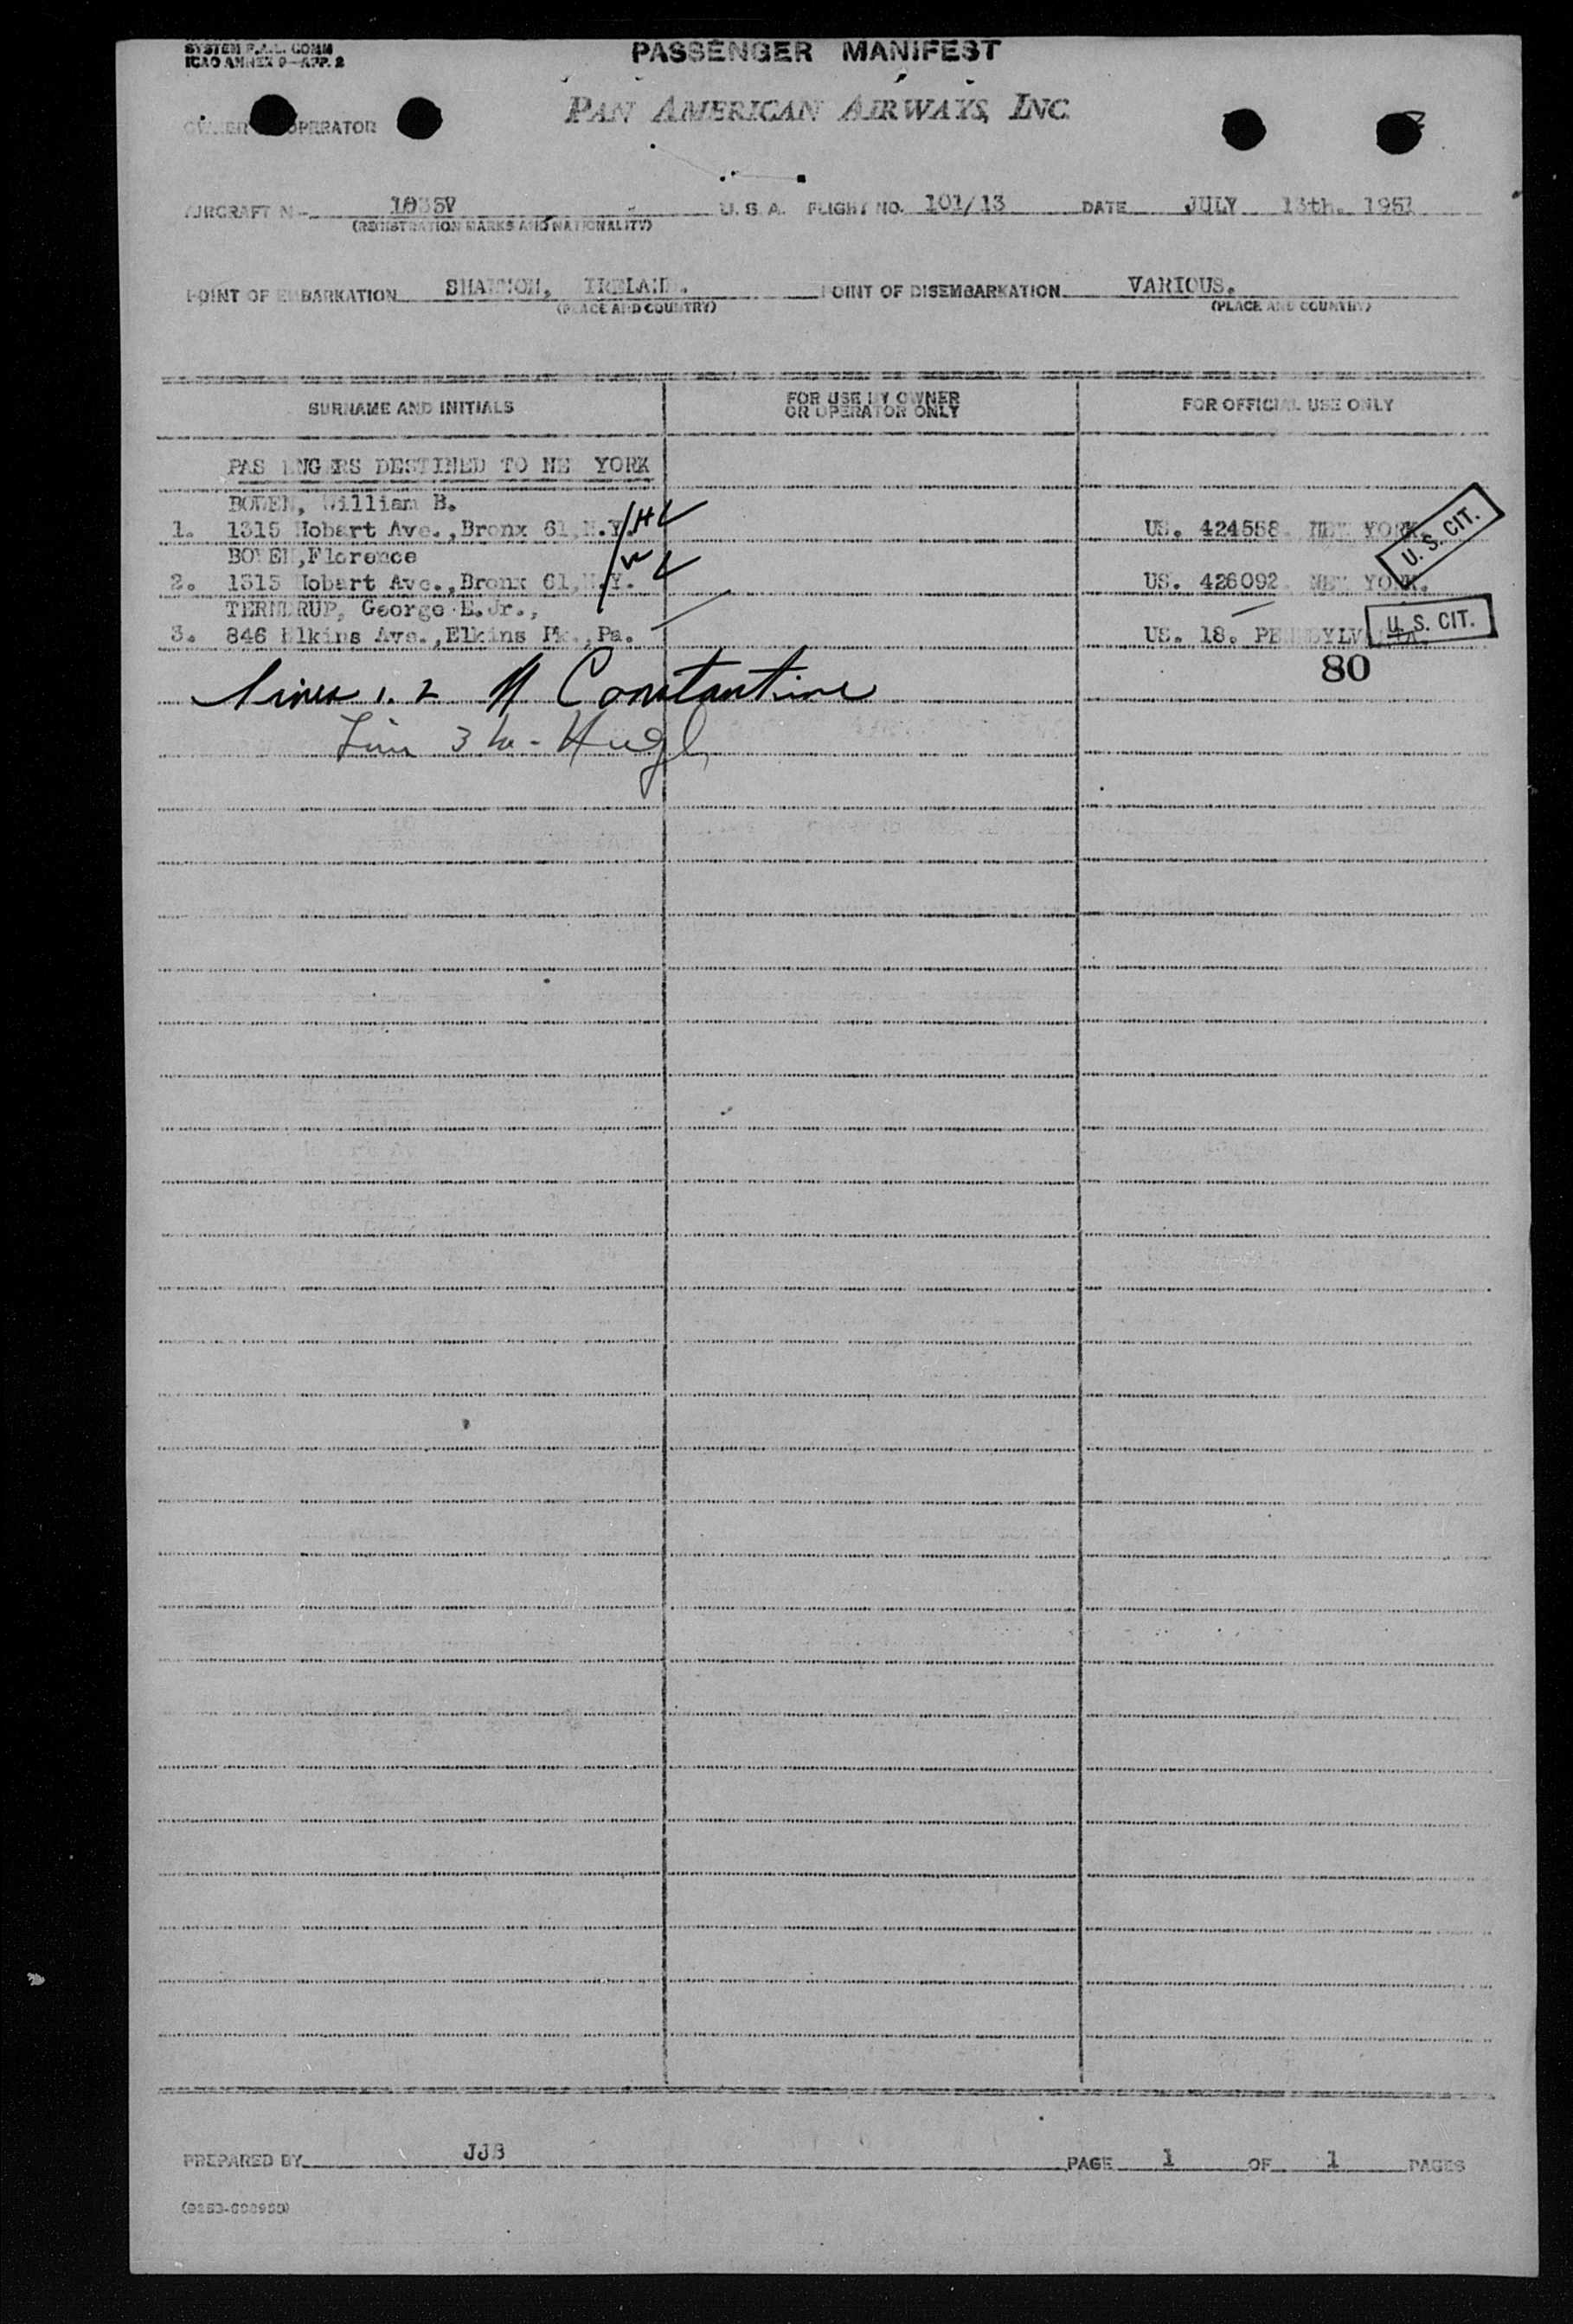 SYSTEM F.A.L. COMM
ICAO ANNEX 9-APP. 2
PASSENGER MANIFEST
PAN AMERICAN AIRWAYS, INC.
OWNER OPERATOR
AIRCRAFT N- U. S. A. FLIGHT NO. 101/13 DATE JULY 13th. 1951
(REGISTRATION MARKS AND NATIONALITY)
POINT OF EMBARKATION SHANNON, IRELAND. POINT OF DISEMBARKATION VARIOUS.
(PLACE AND COUNTRY) (PLACE AND COUNTRY)
SURNAME AND INITIALS FOR USE BY OWNER OR OPERATOR ONLY FOR OFFICIAL USE ONLY
PASSENGERS DESTINED TO NEW YORK
BOWEN, William B.
1. 1315 Hobart Ave.,Bronx 61,N.Y. H US. 424558 NEW YORK. U. S. CIT.
BOWEN,Florence
2. 1315 Hobart Ave.,Bronx 61,N.Y. W US. 426092 NEW YORK.
George E.Jr.,
3. 846 Elkins Ave.,Elkins Pk.,Pa. US. 18. U. S. CIT.
80
Lines 1. 2 Constantine
Line 3
PREPARED BY JJB PAGE 1 OF 1 PAGES